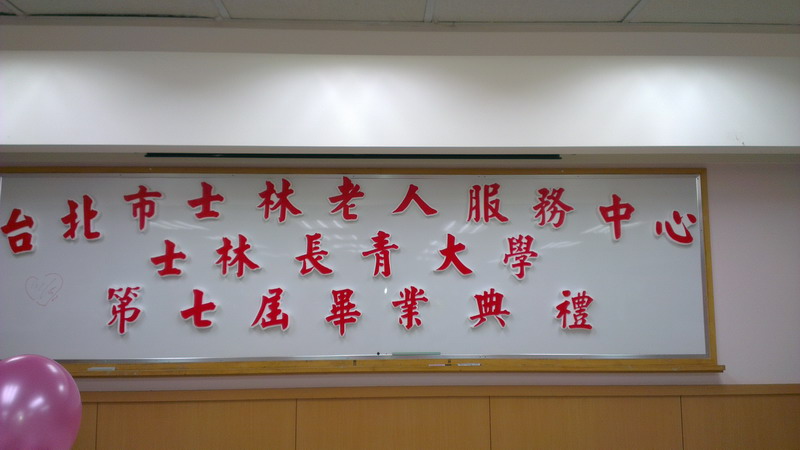 台北市士林老人服務中心
士林長青大學
第七屆畢業典禮